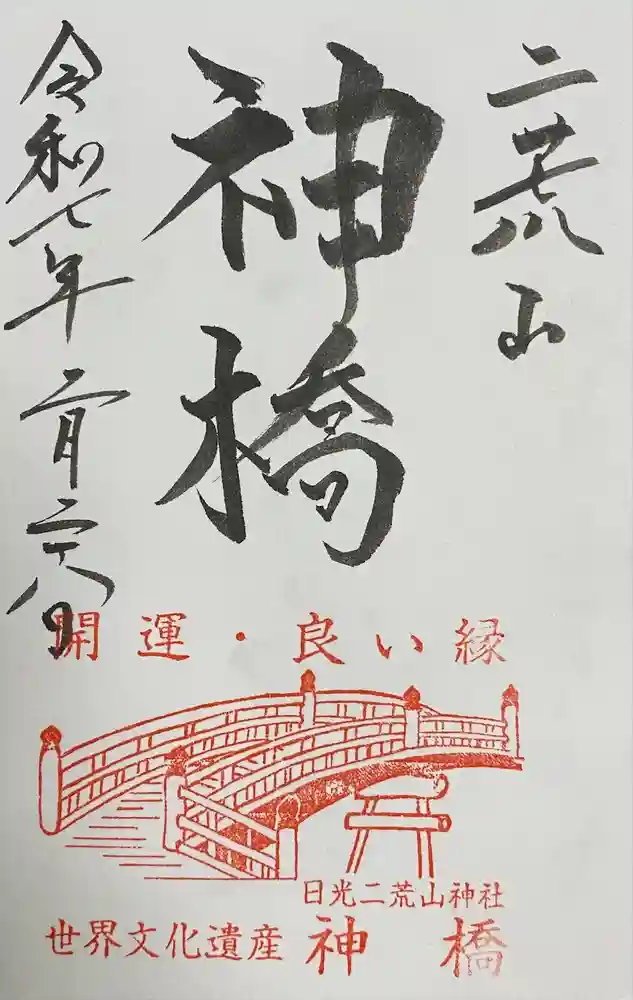 二荒山
神橋
令和七年二月二十八日
開運・良い縁
日光二荒山神社
世界文化遺産 神橋